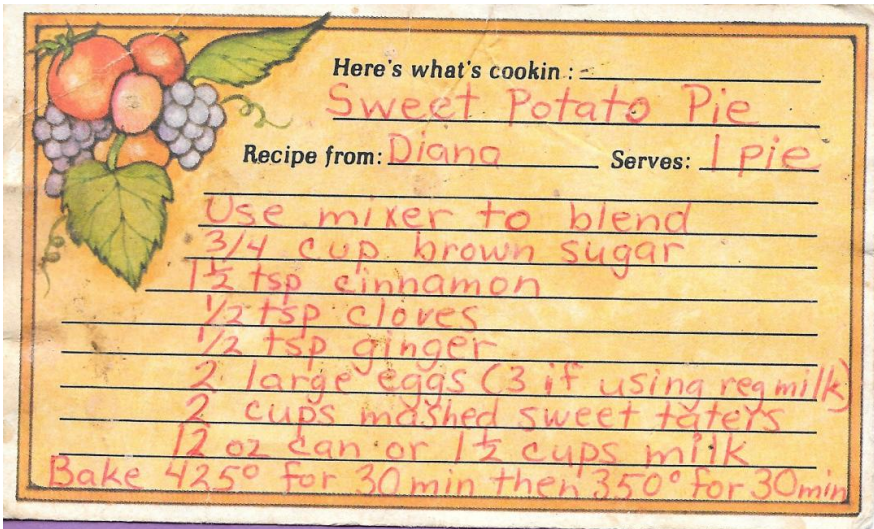 Here's what's cookin:
Sweet Potato Pie
Recipe from: Diana Serves: 1 pie
Use mixer to blend
3/4 cup brown sugar
1 1/2 tsp cinnamon
1/2 tsp cloves
1/2 tsp ginger
2 large eggs (3 if using reg milk)
2 cups mashed sweet taters
12 oz can or 1 1/2 cups milk
Bake 425° for 30 min then 350° for 30 min